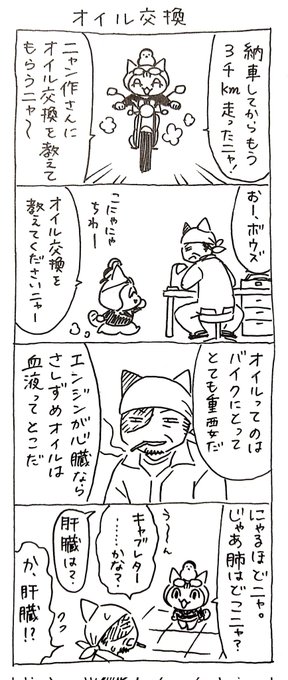 オイル交換
納車してからもう
3千km走ったニャ!
ニャン作さんに
オイル交換を教えて
もらうニャ〜
おー、ボウズ
こにゃにゃ
ちわー
オイル交換を
教えてくださいニャー
オイルってのは
バイクにとって
とても重要だ
エンジンが心臓なら
さしずめオイルは
血液ってとこだ
にゃるほどニャ。
じゃあ肺はどこニャ?
う〜ん
キャブレター
……かな?
肝臓は?
か、肝臓!?